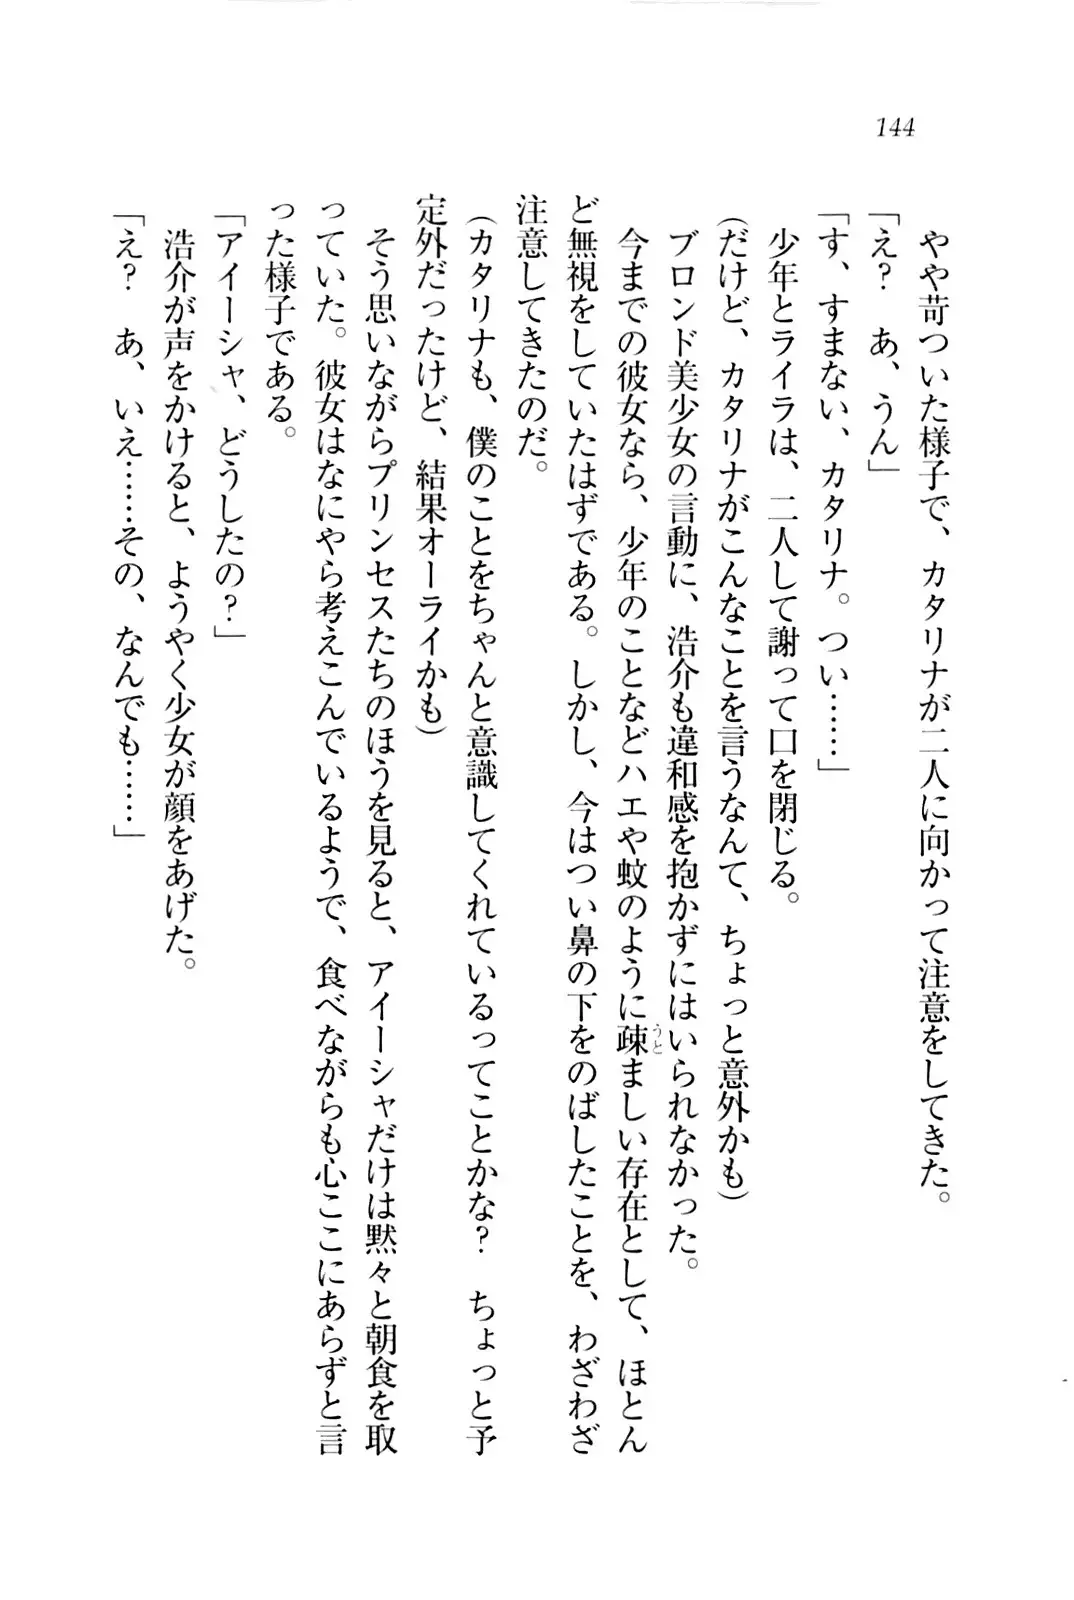 144
やや苛ついた様子で、カタリナが二人に向かって注意をしてきた。
「え?　あ、うん」
「す、すまない、カタリナ。つい……」
少年とライラは、二人して謝って口を閉じる。
(だけど、カタリナがこんなことを言うなんて、ちょっと意外かも)
ブロンド美少女の言動に、浩介も違和感を抱かずにはいられなかった。
今までの彼女なら、少年のことなどハエや蚊のように疎ましい存在として、ほとん
ど無視をしていたはずである。しかし、今はつい鼻の下をのばしたことを、わざわざ
注意してきたのだ。
(カタリナも、僕のことをちゃんと意識してくれているってことかな?　ちょっと予
定外だったけど、結果オーライかも)
そう思いながらプリンセスたちのほうを見ると、アイーシャだけは黙々と朝食を取
っていた。彼女はなにやら考えこんでいるようで、食べながらも心ここにあらずと言
った様子である。
「アイーシャ、どうしたの?」
浩介が声をかけると、ようやく少女が顔をあげた。
「え?　あ、いえ……その、なんでも……」
うと